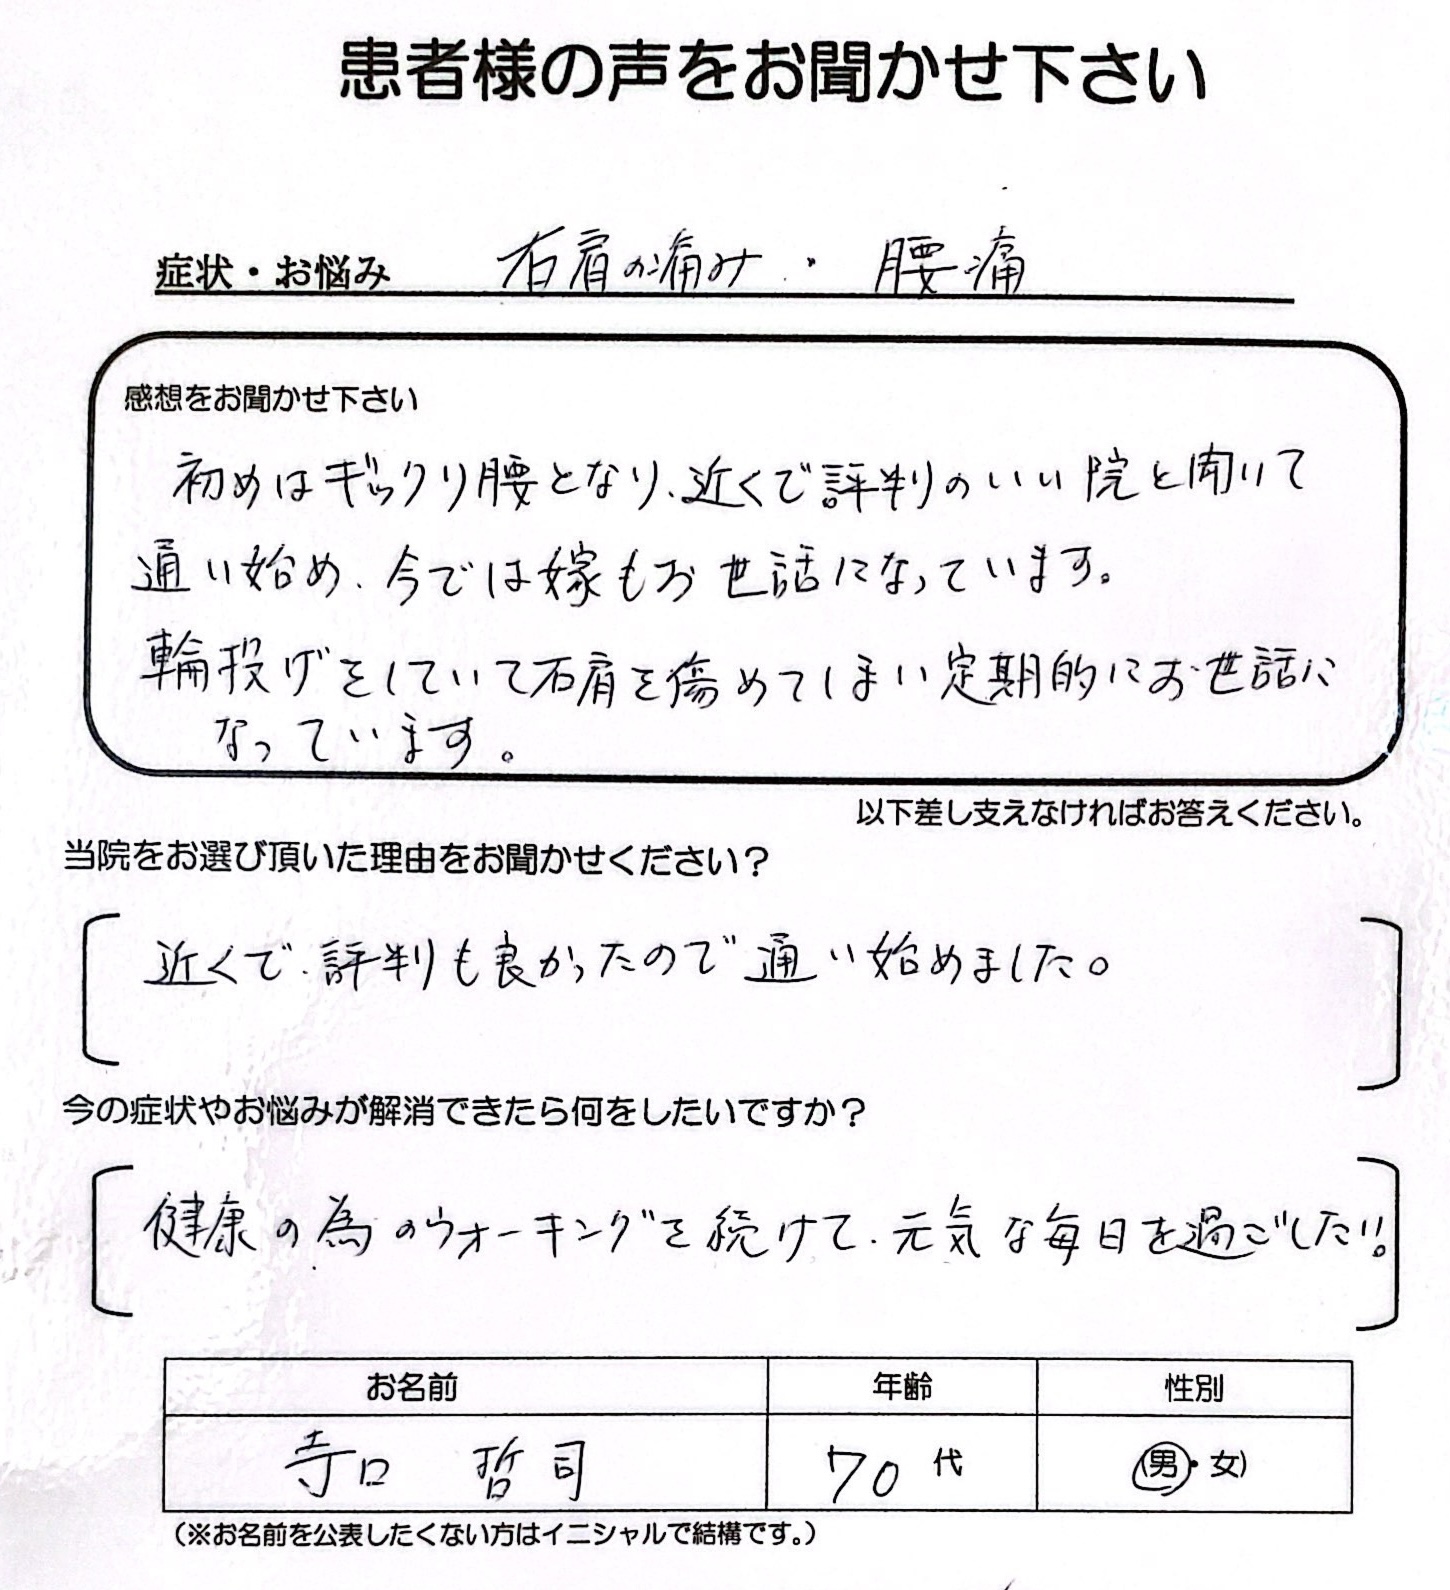 患者様の声をお聞かせ下さい
症状・お悩み 右肩の痛み・腰痛
感想をお聞かせ下さい
初めはギックリ腰となり、近くで評判のいい院と聞いて
通い始め、今では嫁もお世話になっています。
輪投げをしていて右肩を傷めてしまい定期的にお世話に
なっています。
以下差し支えなければお答えください。
当院をお選び頂いた理由をお聞かせください？
近くで、評判も良かったので通い始めました。
今の症状やお悩みが解消できたら何をしたいですか？
健康の為のウォーキングを続けて、元気な毎日を過ごしたい!!。
お名前 年齢 性別
寺口 哲司 70代 (男・女)
(※お名前を公表したくない方はイニシャルで結構です。)